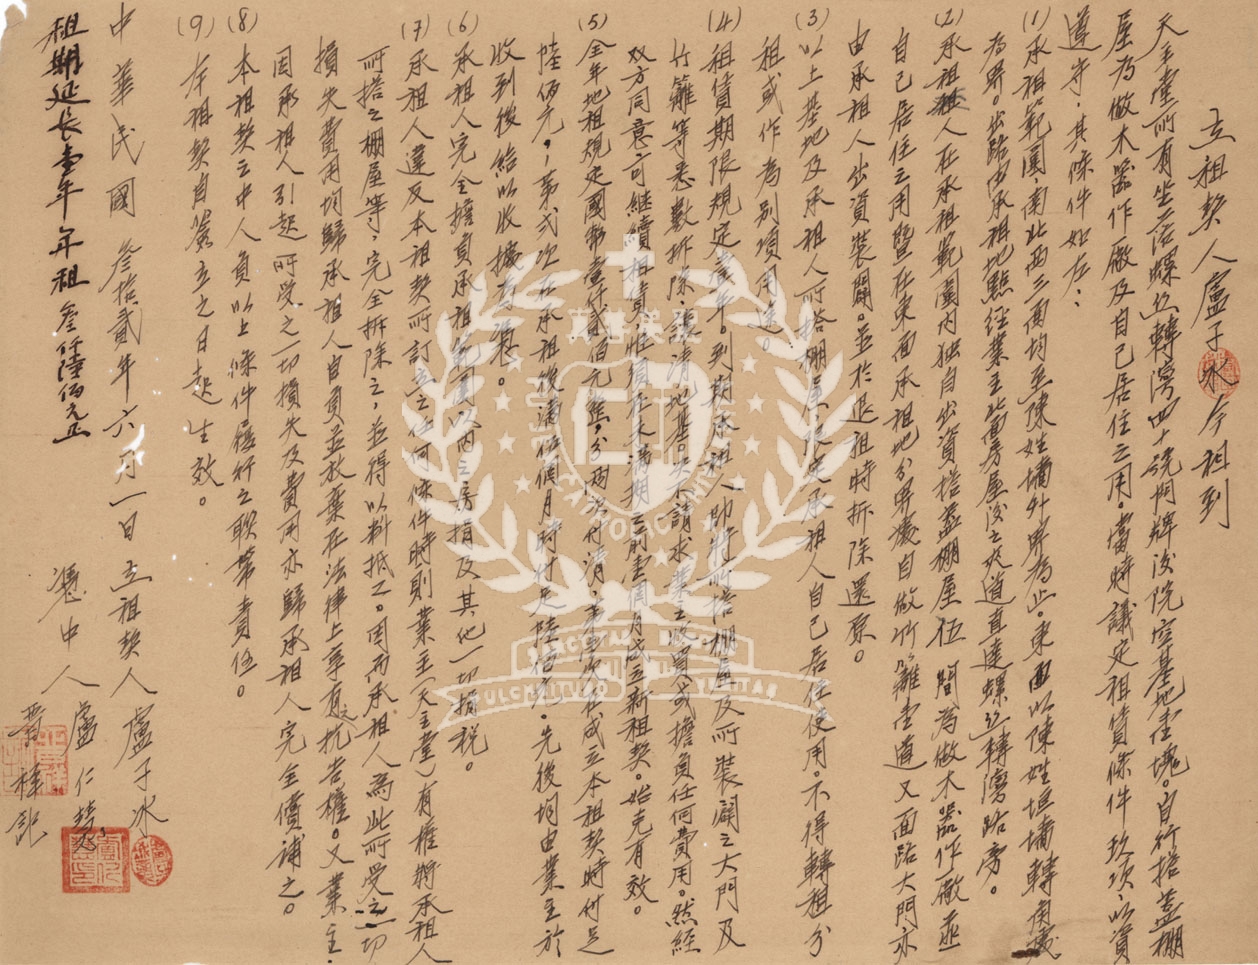 立租契人盧子冰今租到
天主堂所有坐落螺丝轉灣四十號門牌後院空基地壹塊。自行搭蓋棚
屋為做木器作廠及自己居住之用。當時議定租賃條件玖項、以資
遵守，其條件如左：
(1)承租範圍，南北西三面均至陳姓墻外岸為止。東面以陳姓垣墻轉角處
為界。出路由承租地點經業主北面房屋後之夾道直達螺丝轉灣路旁。
(2)承租人在承租範圍內独自出資搭蓋棚屋伍間為做木器作廠並
自己居住之用暨在東面承租地分界處自做竹籬壹道又面路大門亦
由承租人出資裝闢。並於退租時拆除還原。
(3)以上基地及承租人所搭棚屋限定承租人自己居住使用。不得轉租分
租或作為别項用途。
(4)租賃期限規定壹年。到期承租人即將所搭棚屋及所裝闢之大門及
竹籬等悉數拆除、讓清地基。決不請求業主收買或擔負任何費用。然經
双方同意可継續租賃，惟須在未滿期之前壹個月成立新租契。始克有效。
(5)全年地租規定國幣壹仟貳佰元整，分兩次付清，第壹次在成立本租契時付足
陸佰元，第弍次在承租後滿伍個月時付足陸佰元。先後均由業主於
收到後給以收據為憑。
(6)承租人完全擔負承租範圍以內之房捐及其他一切捐稅。
(7)承租人違反本租契所訂立之任何條件時則業主(天主堂)有權將承租人
所搭之棚屋等，完全拆除之，並得以料抵工。因而承租人為此所受之一切
損失費用均歸承租人自負並放棄在法律上享有之抗告權。又業主
因承租人引起所受之一切損失及費用亦歸承租人完全償補之。
(8)本租契之中人負以上條件履行之聯帶責任。
(9)本租契自簽立之日起生效。
中華民國 叁拾貳年六月一日 立租契人 盧子冰
憑中人 盧仁慧
租期延长壹年 年租叁仟陸佰元正